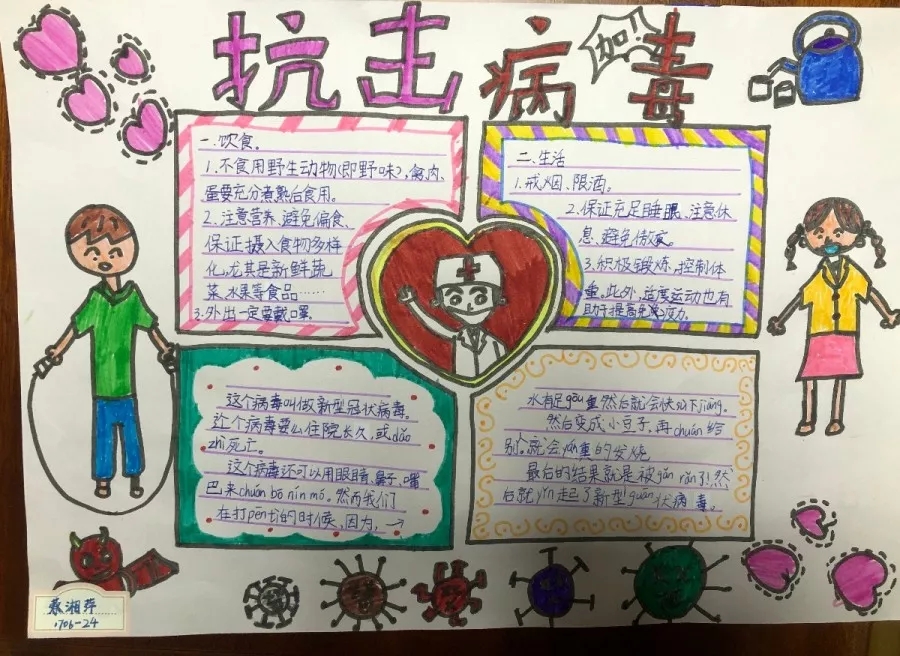 抗击病毒
加!
一.饮食。
1.不食用野生动物(即野味),禽、肉、
蛋要充分煮熟后食用。
2.注意营养、避免偏食、
保证摄入食物多样
化,尤其是新鲜蔬
菜、水果等食品……
3.外出一定要戴口罩。
二.生活
1.戒烟、限酒。
2.保证充足睡眠、注意休
息、避免
3.积极锻炼、控制体
重,此外,适度运动也有
助于提高免疫力。
这个病毒叫做新型冠状病毒。
这个病毒要么住院长久,或dǎo
zhì死亡。
这个病毒还可以用眼睛、鼻子、嘴
巴来chuán bō nín mó。然而我们
在打pēntì的时候,因为, →
水有足gòu重,然后就会快如下jiàng。
然后变成小豆子,再chuán给
别人,就会严重的发烧
最后的结果就是被gǎn rǎn了!然
后就yǐn起了新型guān状病毒。
蔡湘萍
1706-24